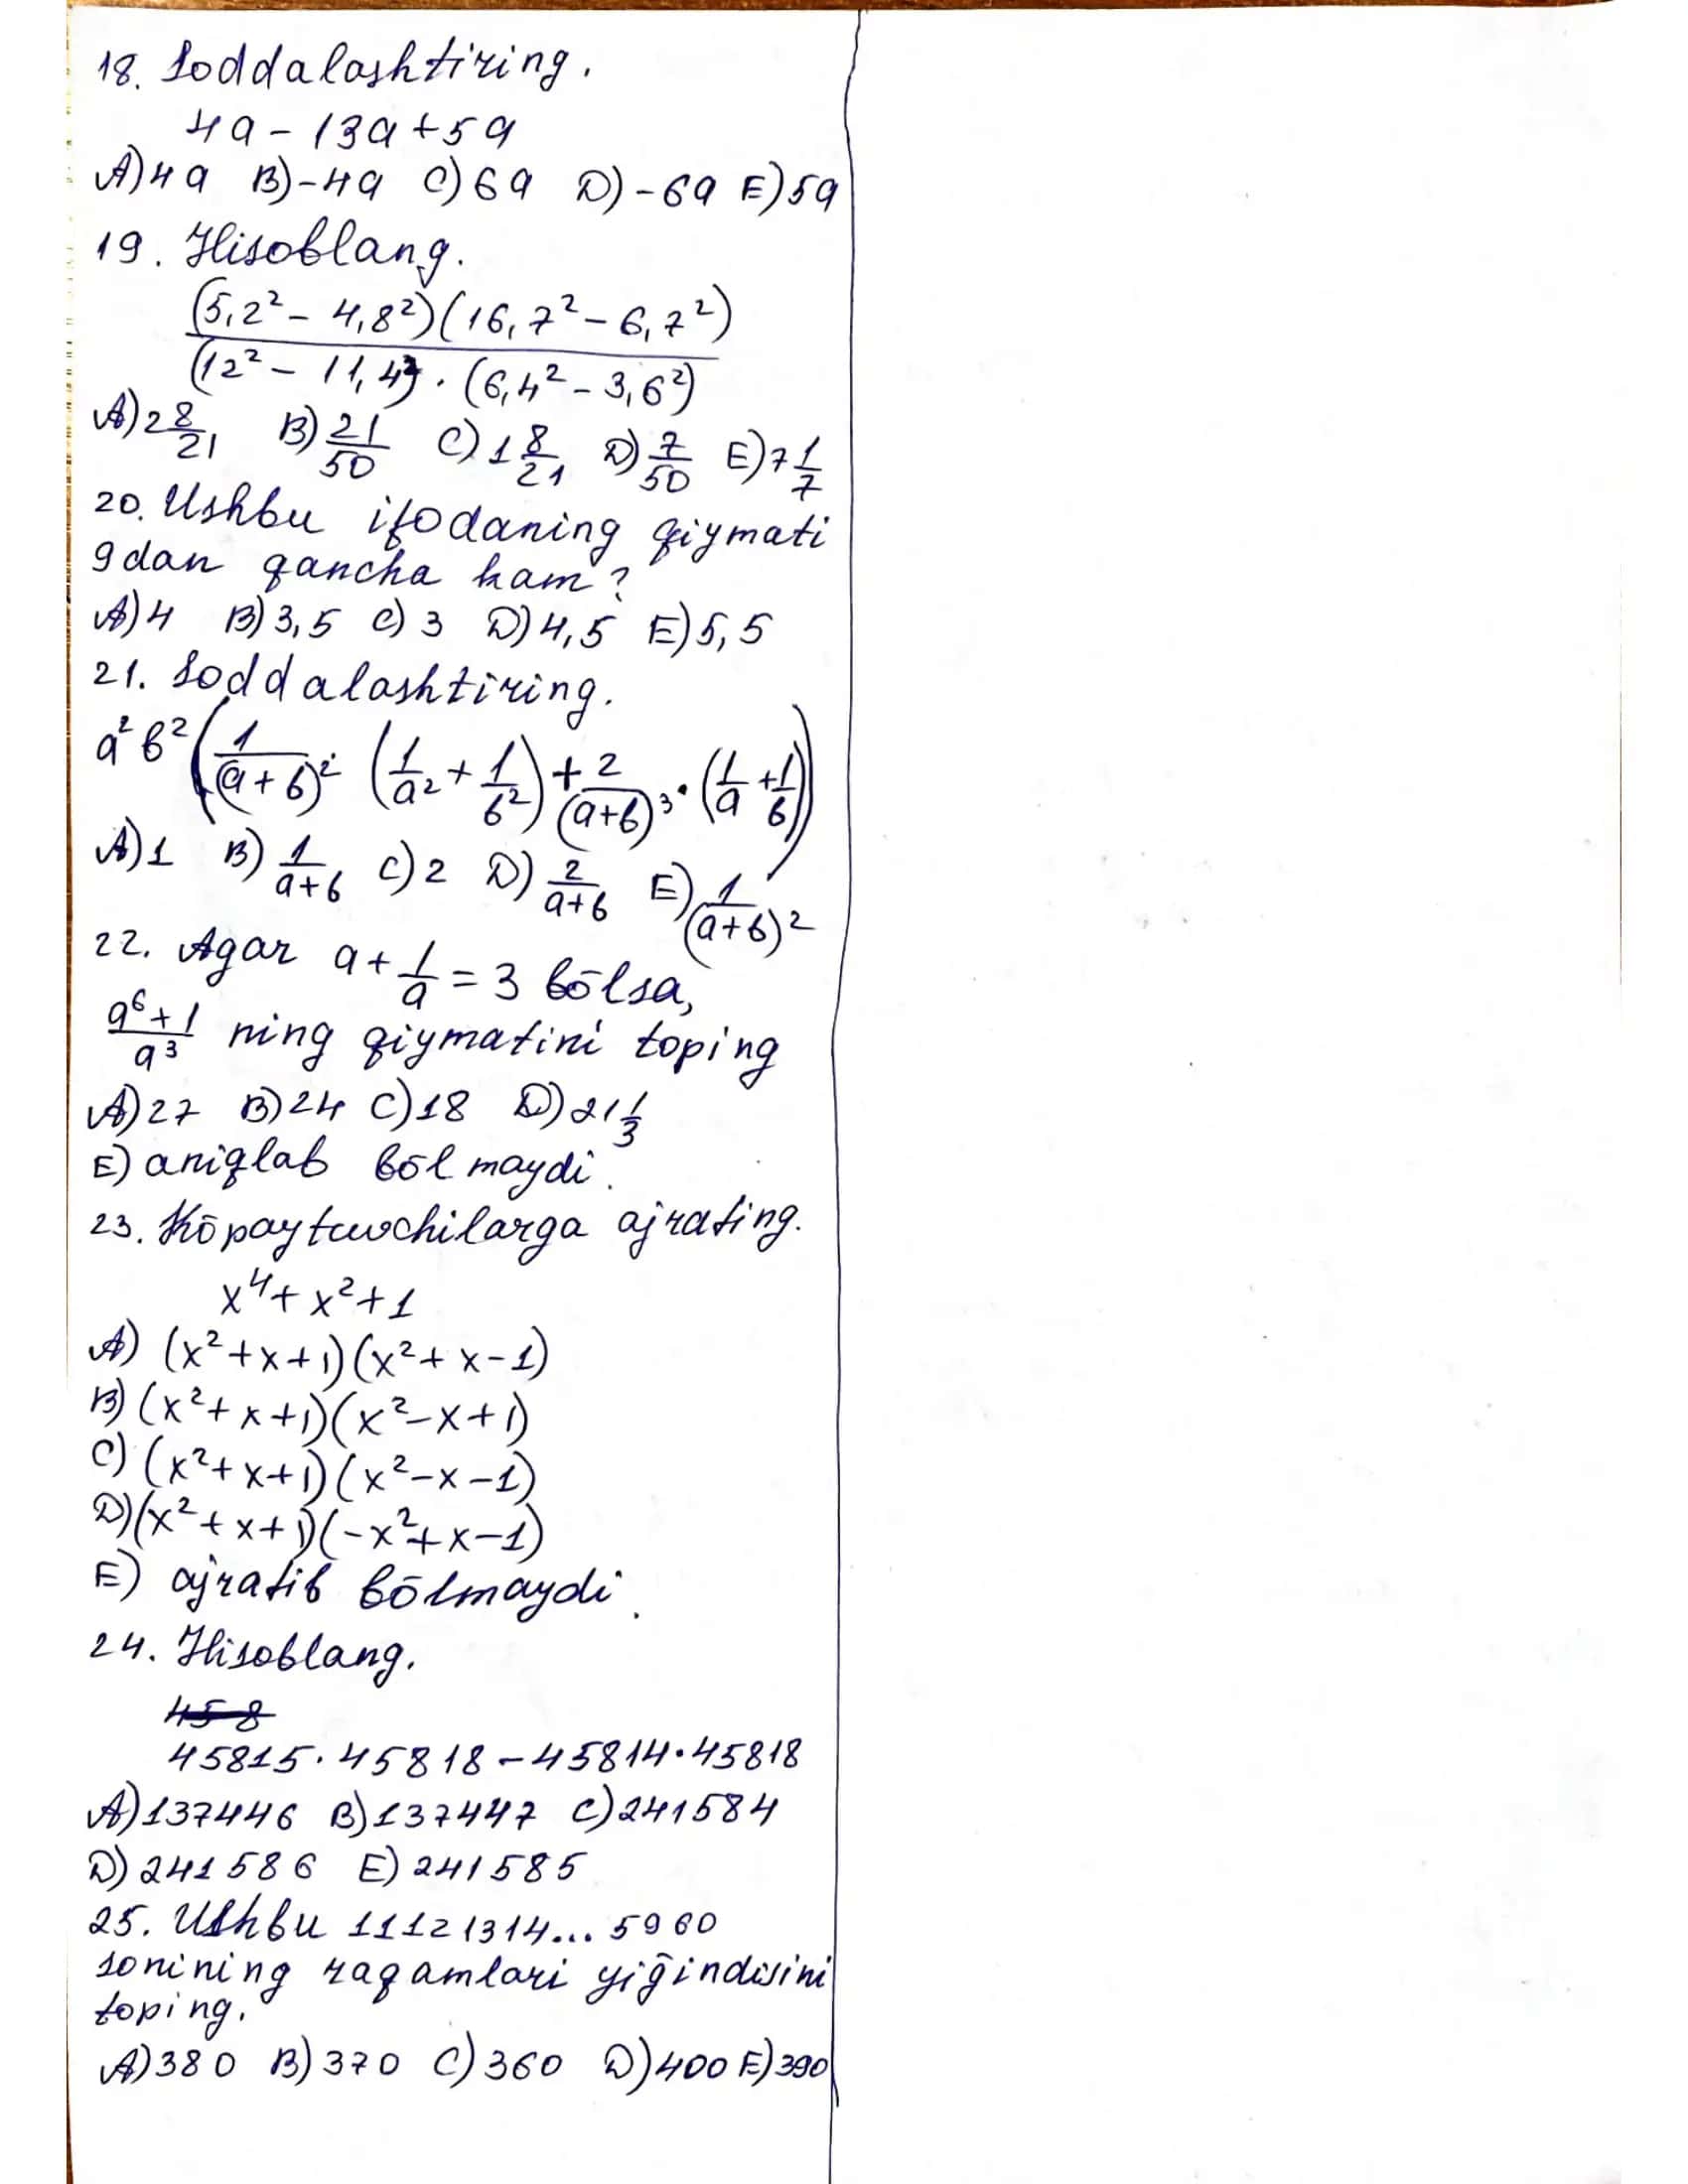 18. Soddalashtiring.
4a - 13a + 5a
A) 4a B) -4a C) 6a D) -6a E) 5a
19. Hisoblang.
(5,2² - 4,8²)(16,7² - 6,7²)
(12² - 11,4²) · (6,4² - 3,6²)
A) 2 8/21 B) 21/50 C) 1 8/21 D) 7/50 E) 7 1/7
20. Ushbu ifodaning qiymati
9 dan qancha kam?
A) 4 B) 3,5 C) 3 D) 4,5 E) 5,5
21. Soddalashtiring.
a²b²(1/(a+b)² · (1/a² + 1/b²) + 2/(a+b)³ · (1/a + 1/b))
A) 1 B) 1/(a+b) C) 2 D) 2/(a+b) E) 1/(a+b)²
22. Agar a + 1/a = 3 bōlsa,
(a⁶+1)/a³ ning qiymatini toping
A) 27 B) 24 C) 18 D) 21 1/3
E) aniqlab bōlmaydi.
23. Kōpaytuvchilarga ajrating.
x⁴ + x² + 1
A) (x²+x+1)(x²+x-1)
B) (x²+x+1)(x²-x+1)
C) (x²+x+1)(x²-x-1)
D) (x²+x+1)(-x²+x-1)
E) ajratib bōlmaydi.
24. Hisoblang.
458
45815·45818-45814·45818
A) 137446 B) 137447 C) 241584
D) 241586 E) 241585
25. Ushbu 11121314... 5960
sonining raqamlari yiḡindisini
toping.
A) 380 B) 370 C) 360 D) 400 E) 390